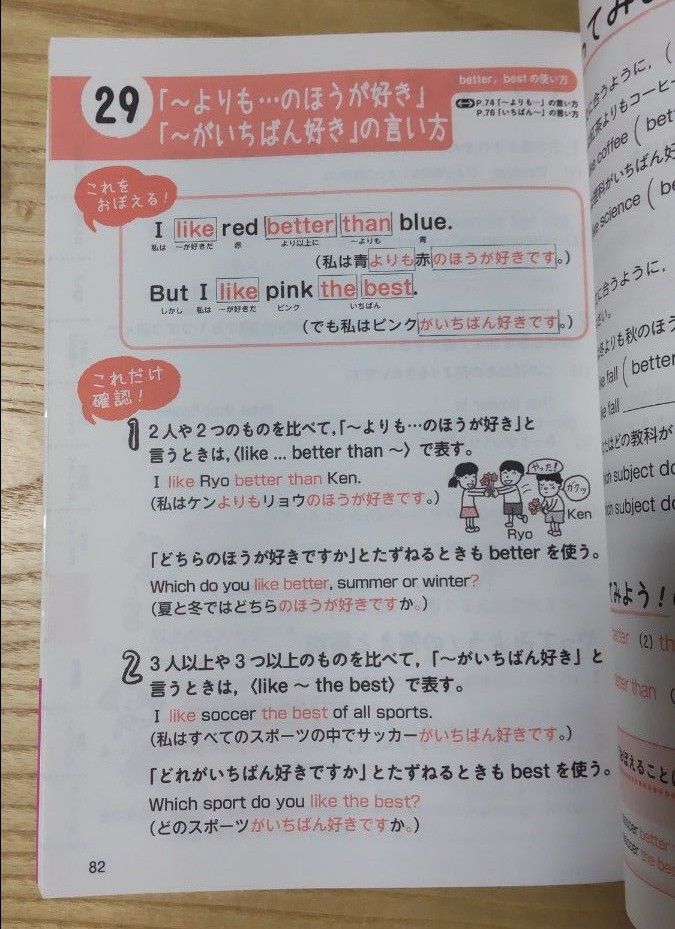 29
「～よりも…のほうが好き」
「～がいちばん好き」の言い方
better, bestの使い方
P.74「～よりも…」の言い方
P.76「いちばん～」の言い方
これを
おぼえる!
I like red better than blue.
私は ～が好きだ 赤 より以上に ～よりも 青
(私は青よりも赤のほうが好きです。)
But I like pink the best.
しかし 私は ～が好きだ ピンク いちばん
(でも私はピンクがいちばん好きです。)
これだけ
確認!
1 2人や2つのものを比べて,「～よりも…のほうが好き」と
言うときは,〈like ... better than ～〉で表す。
I like Ryo better than Ken.
(私はケンよりもリョウのほうが好きです。)
やった!
ガクッ
Ryo
Ken
「どちらのほうが好きですか」とたずねるときも better を使う。
Which do you like better, summer or winter?
(夏と冬ではどちらのほうが好きですか。)
2 3人以上や3つ以上のものを比べて,「～がいちばん好き」と
言うときは,〈like ～ the best〉で表す。
I like soccer the best of all sports.
(私はすべてのスポーツの中でサッカーがいちばん好きです。)
「どれがいちばん好きですか」とたずねるときも best を使う。
Which sport do you like the best?
(どのスポーツがいちばん好きですか。)
82
合うように, (
茶よりもコーヒー
coffee (
がいちばん好
science (
合うように,
よりも秋のほう
fall (better
fall
はどの教科が
subject do
subject do
みよう!
better (2) th
better than
おぼえること
better
the be